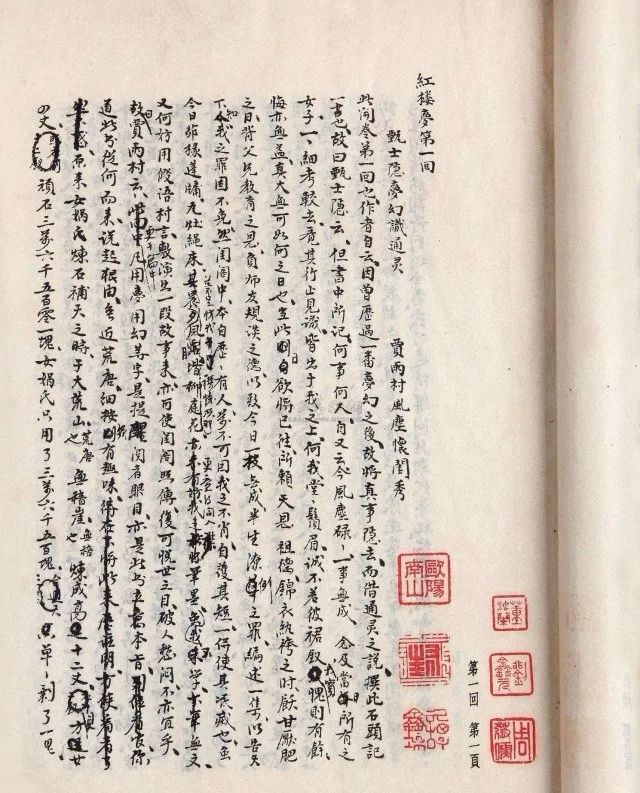 紅楼夢第一回
甄士隱夢幻識通灵 賈雨村風塵懷閨秀
此開卷第一回也作者自云因曾歷過一番夢幻之後故將真事隱去而借通灵之說撰此石頭記
一書也故曰甄士隱云但書中所記何事何人自又云今風塵碌、一事無成念及當日所有之
女子一、細考較去竟其行止見識皆出于我之上何我堂、鬚眉誠不若彼裙釵我實愧則有餘
悔亦無益真大無可如何之日也當此則自欲將已往所賴天恩祖德錦衣紈袴之时飫甘厭肥
之日背父兄教育之恩負师友規談之德以致今日一技無成半生潦倒之罪編述一集以告天
下知我之罪固不免然閨閣中本自歷、有人萬不可因我之不肖自護其短一併使其泯滅也虽
今日茅椽蓬牖瓦灶繩床其晨夕風露堦柳庭花
又何妨用假語村言敷演出一段故事來亦可使閨閣照傳復可悦世之目破人愁悶不亦宜乎
故曰賈雨村云此回中凡用夢用幻等字是提醒閱者眼目亦是此书立意本旨
道此书從何而来說起根由虽近荒唐細按則有趣味待在下將此來歷註明方使看者
石来女媧氏煉石補天之時于大荒山荒唐也無稽崖無稽也煉成高十二丈方廿
四丈頑石三萬六千五百零一塊女媧氏只用了三萬六千五百塊單、剩了一塊
歐陽南山
第一回 第一頁